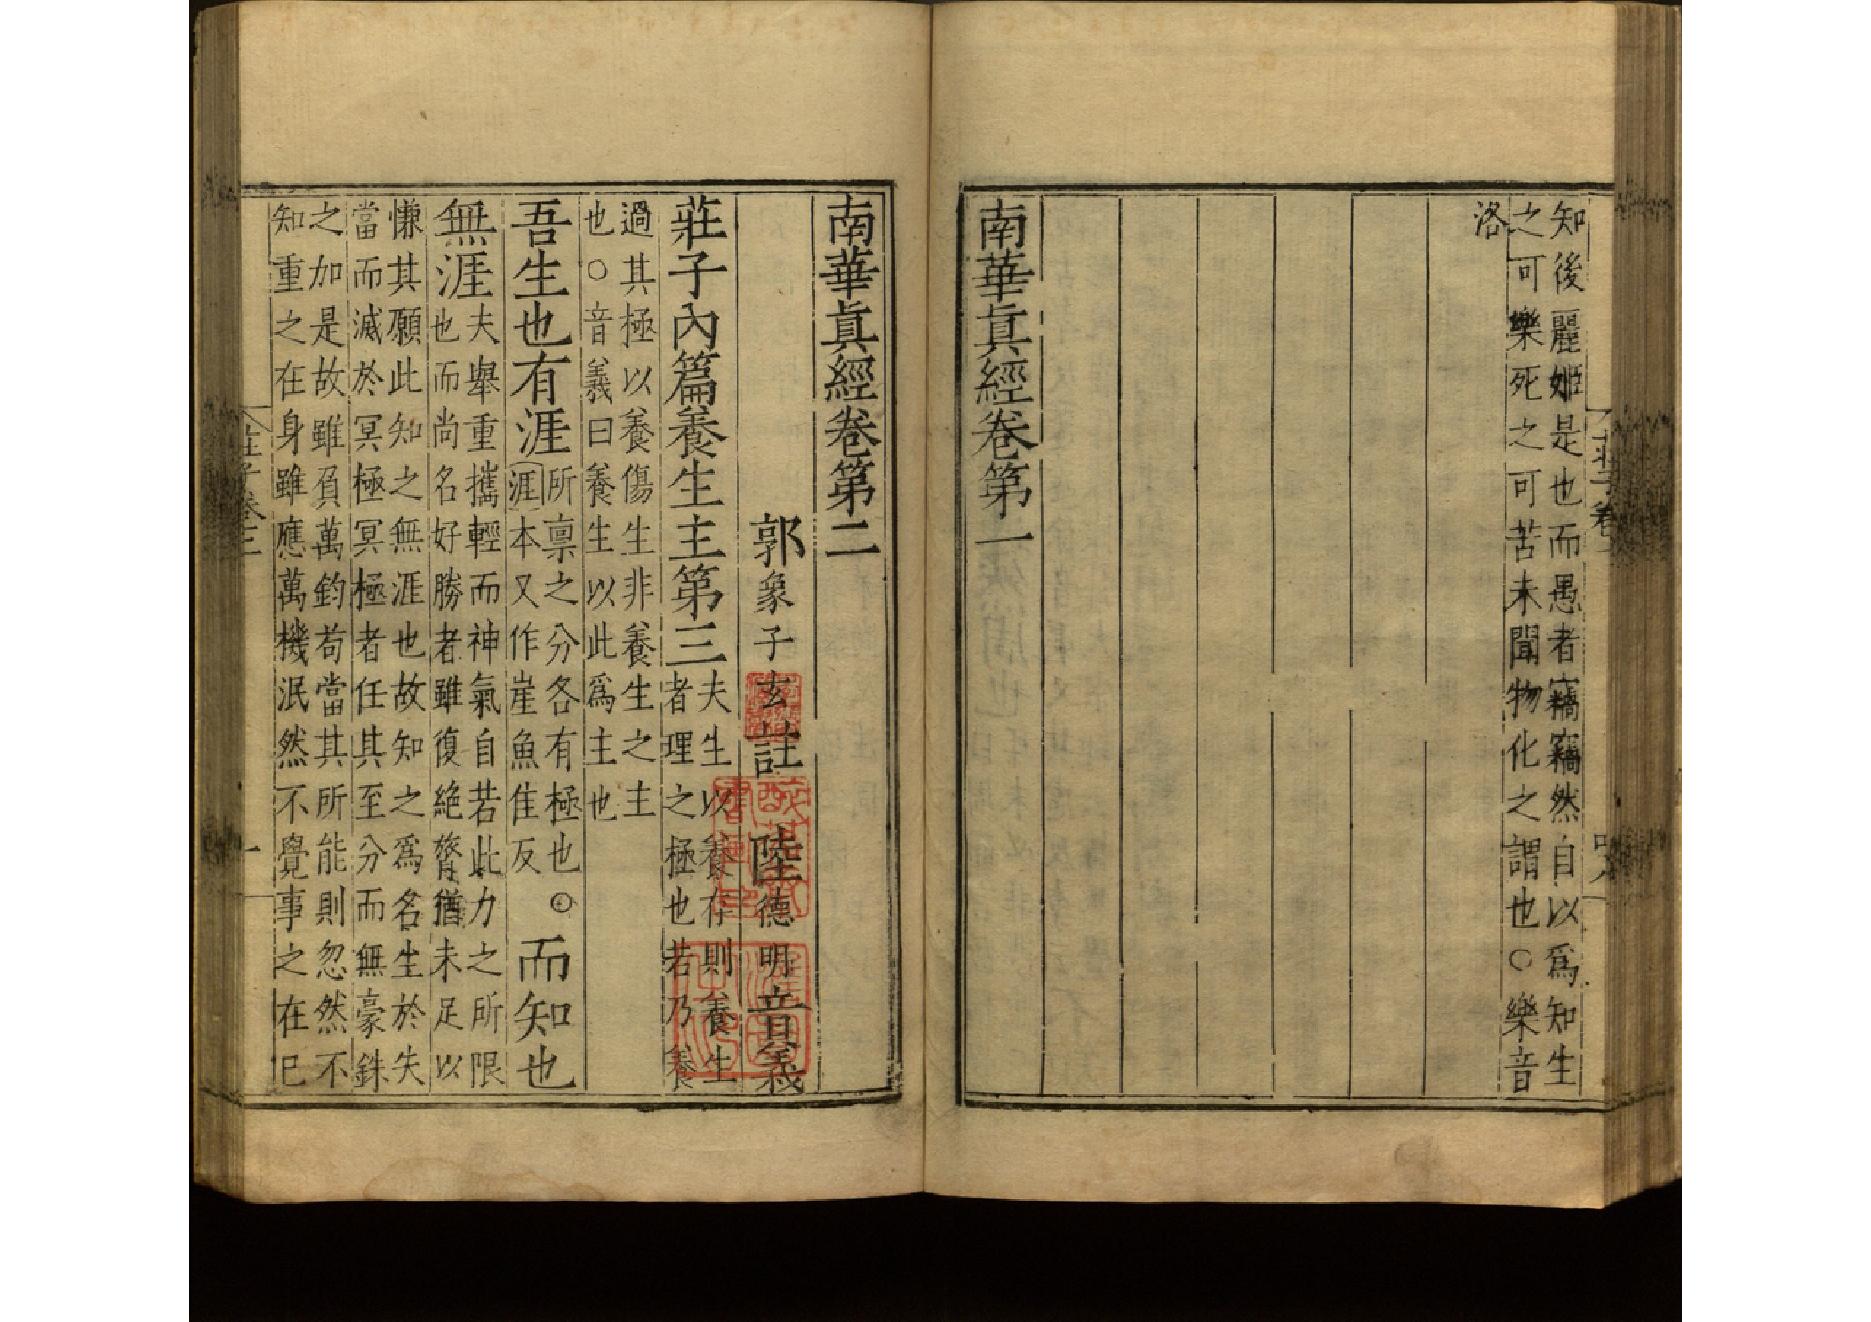 知後麗姬是也而愚者竊竊然自以爲知生
之可樂死之可苦未聞物化之謂也○樂音
洛
南華眞經卷第一
南華眞經卷第二
郭象子玄註 陸德明音義
莊子內篇養生主第三
夫生以養存則養生
者理之極也若乃養
過其極以養傷生非養生之主
也○音義曰養生以此爲主也
吾生也有涯
所禀之分各有極也○
涯本又作崖魚隹反
而知也
無涯
夫舉重攜輕而神氣自若此力之所限
也而尚名好勝者雖復絶膂猶未足以
慊其願此知之無涯也故知之爲名生於失
當而滅於冥極冥極者任其至分而無豪銖
之加是故雖負萬鈞苟當其所能則忽然不
知重之在身雖應萬機泯然不覺事之在已